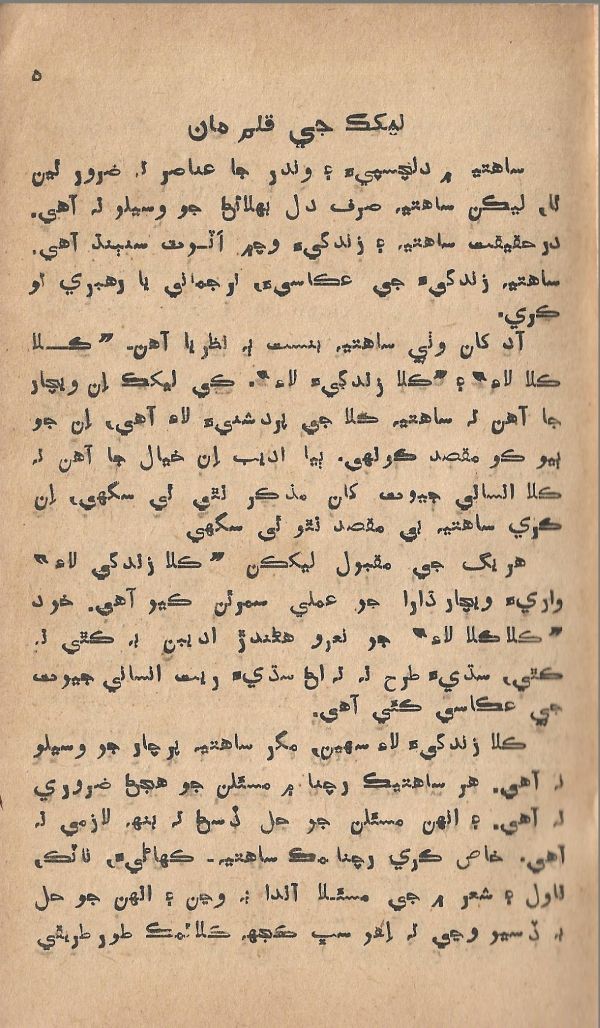 ۵
ليکڪ جي قلم مان
ساهتيہ ۾ دلچسپيءَ ۽ وندر جا عناصر تہ ضرور ٿين
ٿا، ليڪن ساهتيہ صرف دل بهلائڻ جو وسيلو نہ آهي.
درحقيقت ساهتيہ ۽ زندگيءَ وچ۾ اٽوٽ سنٻنڌ آهي.
ساهتيہ زندگيءَ جي عڪاسي، ترجماني يا رهبري ٿو
ڪري.
آد کان وٺي ساهتيہ بنسبت ٻہ نظريا آهن۔ ”ڪلا
ڪلا لاءِ“ ۽ ”ڪلا زندگيءَ لاءِ“. ڪي ليکڪ اِن ويچار
جا آهن تہ ساهتيہ ڪلا جي پردشنيءَ لاءِ آهي، اِن جو
ٻيو ڪو مقصد ڪونهي. ٻيا اديب اِن خيال جا آهن تہ
ڪلا انساني جيوت کان منڪر نٿي ٿي سگهي، اِن
ڪري ساهتيہ بي مقصد نٿو ٿي سگهي
هر يگ جي مقبول ليکڪن ”ڪلا زندگي لاءِ“
واريءَ ويچار ڌارا جو عملي سمرٿن ڪيو آهي. خود
”ڪلا ڪلا لاءِ“ جو نعرو هڻندڙ اديبن بہ ڪٿي نہ
ڪٿي، سڌيءَ طرح نہ تہ اڻ سڌيءَ ريت انساني جيوت
جي عڪاسي ڪئي آهي.
ڪلا زندگيءَ لاءِ سهين، مگر ساهتيہ پرچار جو وسيلو
نہ آهي. هر ساهتيڪ رچنا ۾ مسئلن جو هجڻ ضروري
نہ آهي. ۽ انهن مسئلن جو حل ڏسڻ تہ بنهہ لازمي نہ
آهي. خاص ڪري رچناتمڪ ساهتيہ۔ ڪهاڻيءَ، ناٽڪ،
ناول ۽ شعر ۾ جي مسئلا آندا بہ وڃن ۽ انهن جو حل
بہ ڏسيو وڃي تہ اِهو سڀ ڪجهہ ڪلاتمڪ طور طريقي